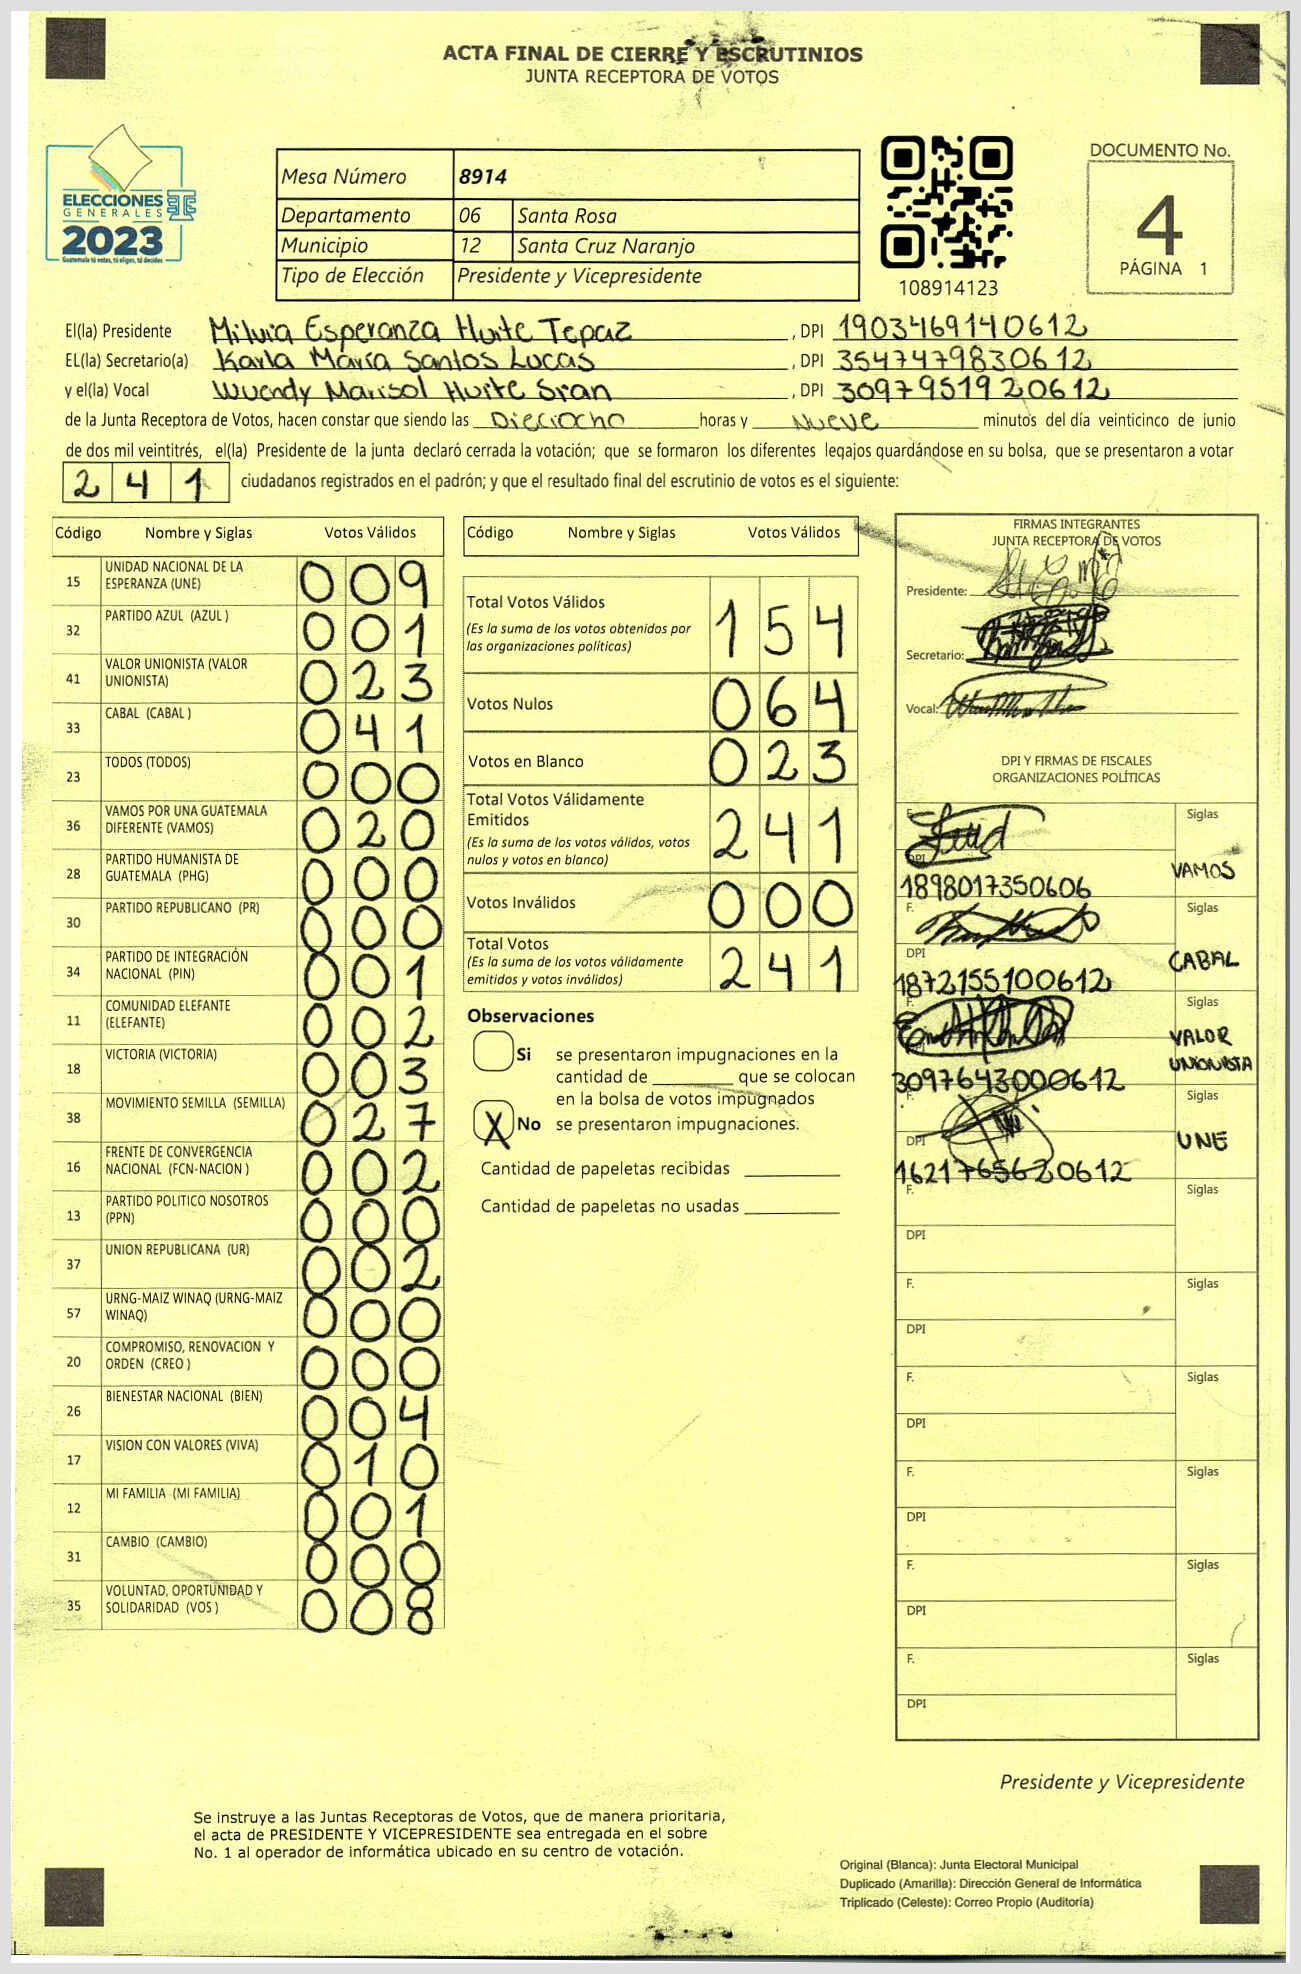 ACTA FINAL DE CIERRE Y ESCRUTINIOS
JUNTA RECEPTORA DE VOTOS
ELECCIONES
GENERALES
2023
Guatemala tú votas, tú eliges, tú decides
Mesa Número 8914
Departamento 06 Santa Rosa
Municipio 12 Santa Cruz Naranjo
Tipo de Elección Presidente y Vicepresidente
108914123
DOCUMENTO No.
4
PÁGINA 1
El(la) Presidente Milvia Esperanza Huite Tepaz , DPI 1903469140612
EL(la) Secretario(a) Karla María Santos Lucas , DPI 3547479830612
y el(la) Vocal Wuendy Marisol Huite Sran , DPI 3097951920612
de la Junta Receptora de Votos, hacen constar que siendo las Dieciocho horas y Nueve minutos del día veinticinco de junio
de dos mil veintitrés, el(la) Presidente de la junta declaró cerrada la votación; que se formaron los diferentes legajos guardándose en su bolsa, que se presentaron a votar
241 ciudadanos registrados en el padrón; y que el resultado final del escrutinio de votos es el siguiente:
Código Nombre y Siglas Votos Válidos
15 UNIDAD NACIONAL DE LA ESPERANZA (UNE) 009
32 PARTIDO AZUL (AZUL ) 001
41 VALOR UNIONISTA (VALOR UNIONISTA) 023
33 CABAL (CABAL ) 041
23 TODOS (TODOS) 000
36 VAMOS POR UNA GUATEMALA DIFERENTE (VAMOS) 020
28 PARTIDO HUMANISTA DE GUATEMALA (PHG) 000
30 PARTIDO REPUBLICANO (PR) 000
34 PARTIDO DE INTEGRACIÓN NACIONAL (PIN) 001
11 COMUNIDAD ELEFANTE (ELEFANTE) 002
18 VICTORIA (VICTORIA) 003
38 MOVIMIENTO SEMILLA (SEMILLA) 027
16 FRENTE DE CONVERGENCIA NACIONAL (FCN-NACION ) 002
13 PARTIDO POLITICO NOSOTROS (PPN) 000
37 UNION REPUBLICANA (UR) 002
57 URNG-MAIZ WINAQ (URNG-MAIZ WINAQ) 000
20 COMPROMISO, RENOVACION Y ORDEN (CREO ) 000
26 BIENESTAR NACIONAL (BIEN) 004
17 VISION CON VALORES (VIVA) 010
12 MI FAMILIA (MI FAMILIA) 001
31 CAMBIO (CAMBIO) 000
35 VOLUNTAD, OPORTUNIDAD Y SOLIDARIDAD (VOS ) 008
Código Nombre y Siglas Votos Válidos
Total Votos Válidos 154
(Es la suma de los votos obtenidos por
las organizaciones políticas)
Votos Nulos 064
Votos en Blanco 023
Total Votos Válidamente
Emitidos 241
(Es la suma de los votos válidos, votos
nulos y votos en blanco)
Votos Inválidos 000
Total Votos 241
(Es la suma de los votos válidamente
emitidos y votos inválidos)
Observaciones
Si se presentaron impugnaciones en la
cantidad de ________ que se colocan
en la bolsa de votos impugnados
X No se presentaron impugnaciones.
Cantidad de papeletas recibidas
Cantidad de papeletas no usadas
FIRMAS INTEGRANTES
JUNTA RECEPTORA DE VOTOS
Presidente:
Secretario:
Vocal:
DPI Y FIRMAS DE FISCALES
ORGANIZACIONES POLÍTICAS
F. Siglas
DPI VAMOS
1898017350606
F. Siglas
DPI CABAL
1872155100612
F. Siglas
VALOR
UNIONISTA
3097643000612
F. Siglas
DPI UNE
1621765620612
F. Siglas
DPI
F. Siglas
DPI
F. Siglas
DPI
F. Siglas
DPI
F. Siglas
DPI
F. Siglas
DPI
Presidente y Vicepresidente
Se instruye a las Juntas Receptoras de Votos, que de manera prioritaria,
el acta de PRESIDENTE Y VICEPRESIDENTE sea entregada en el sobre
No. 1 al operador de informática ubicado en su centro de votación.
Original (Blanca): Junta Electoral Municipal
Duplicado (Amarilla): Dirección General de Informática
Triplicado (Celeste): Correo Propio (Auditoría)